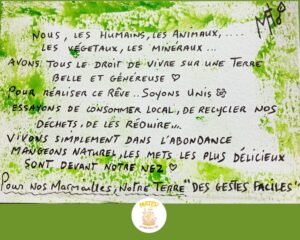 Nous, les humains, les animaux, ....
les végétaux, les minéraux ...
avons tous le droit de vivre sur une Terre
belle et généreuse ♡
Pour réaliser ce rêve.. soyons unis
essayons de consommer local, de recycler nos
déchets, de les réduire...
Vivons simplement dans l'abondance
mangeons naturel, les mets les plus délicieux
sont devant notre nez ♡
Pour nos Marmailles, notre Terre "des gestes faciles"